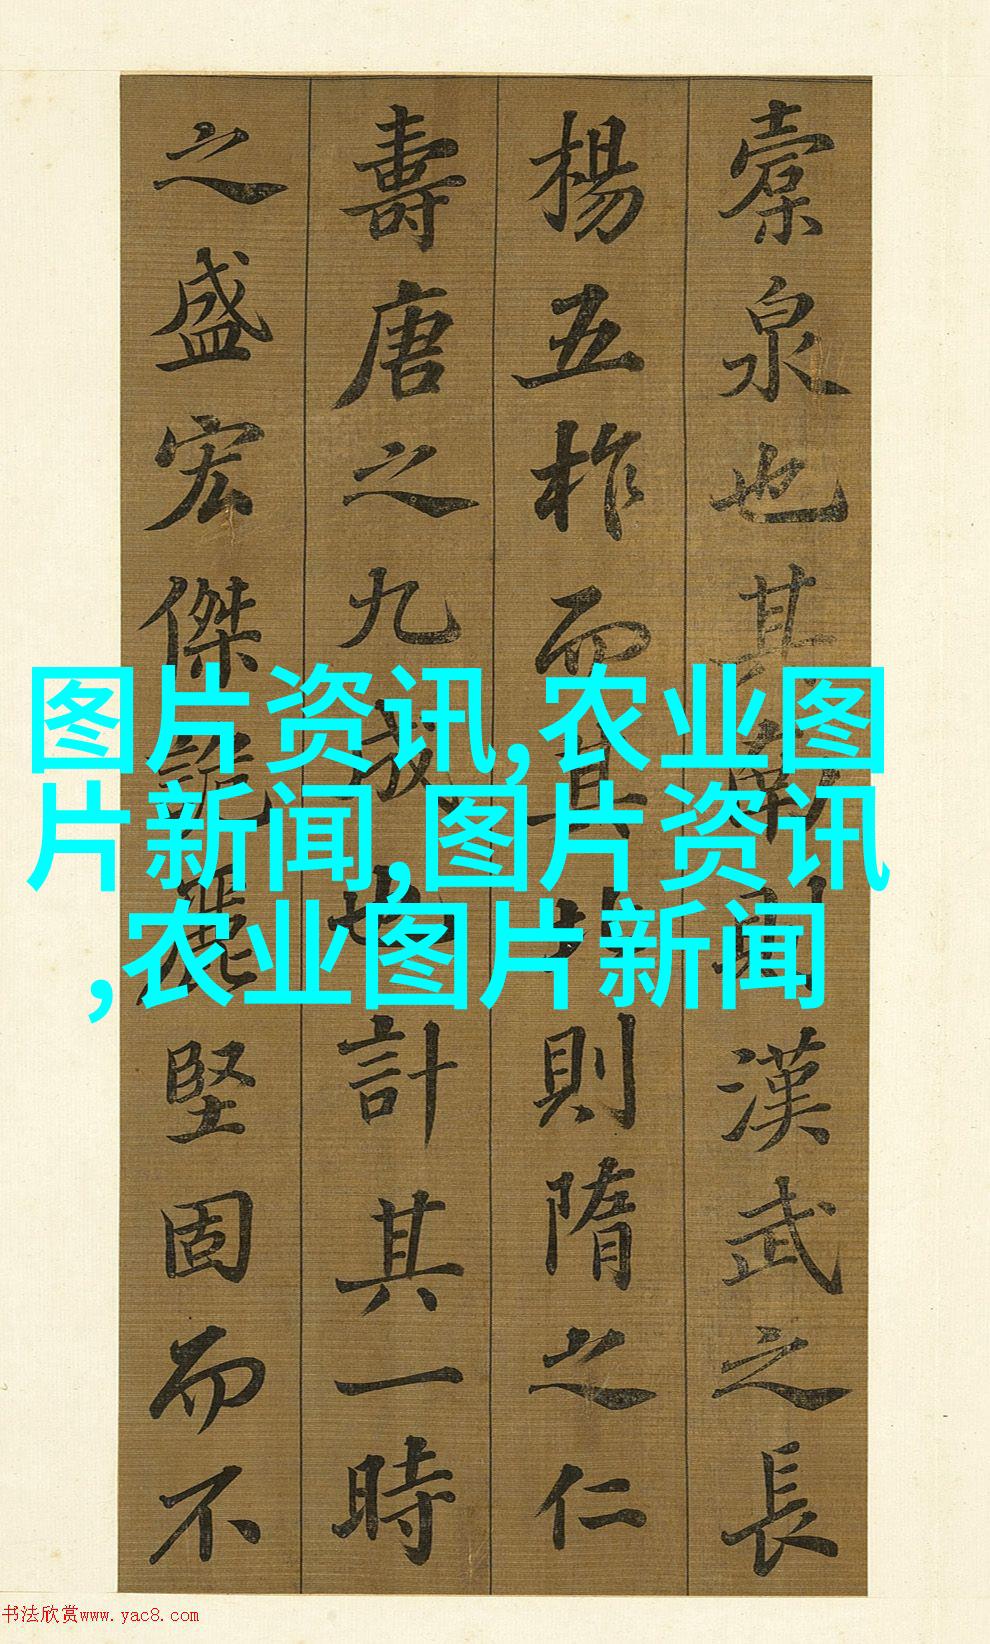 橐泉也其南則漢武之長
楊五柞而其北則隋之仁
壽唐之九成也計其一時
之盛宏傑詭麗堅固而不
图片资讯,农业图
片新闻,图片资讯
,农业图片新闻
书法欣赏www.yac8.com